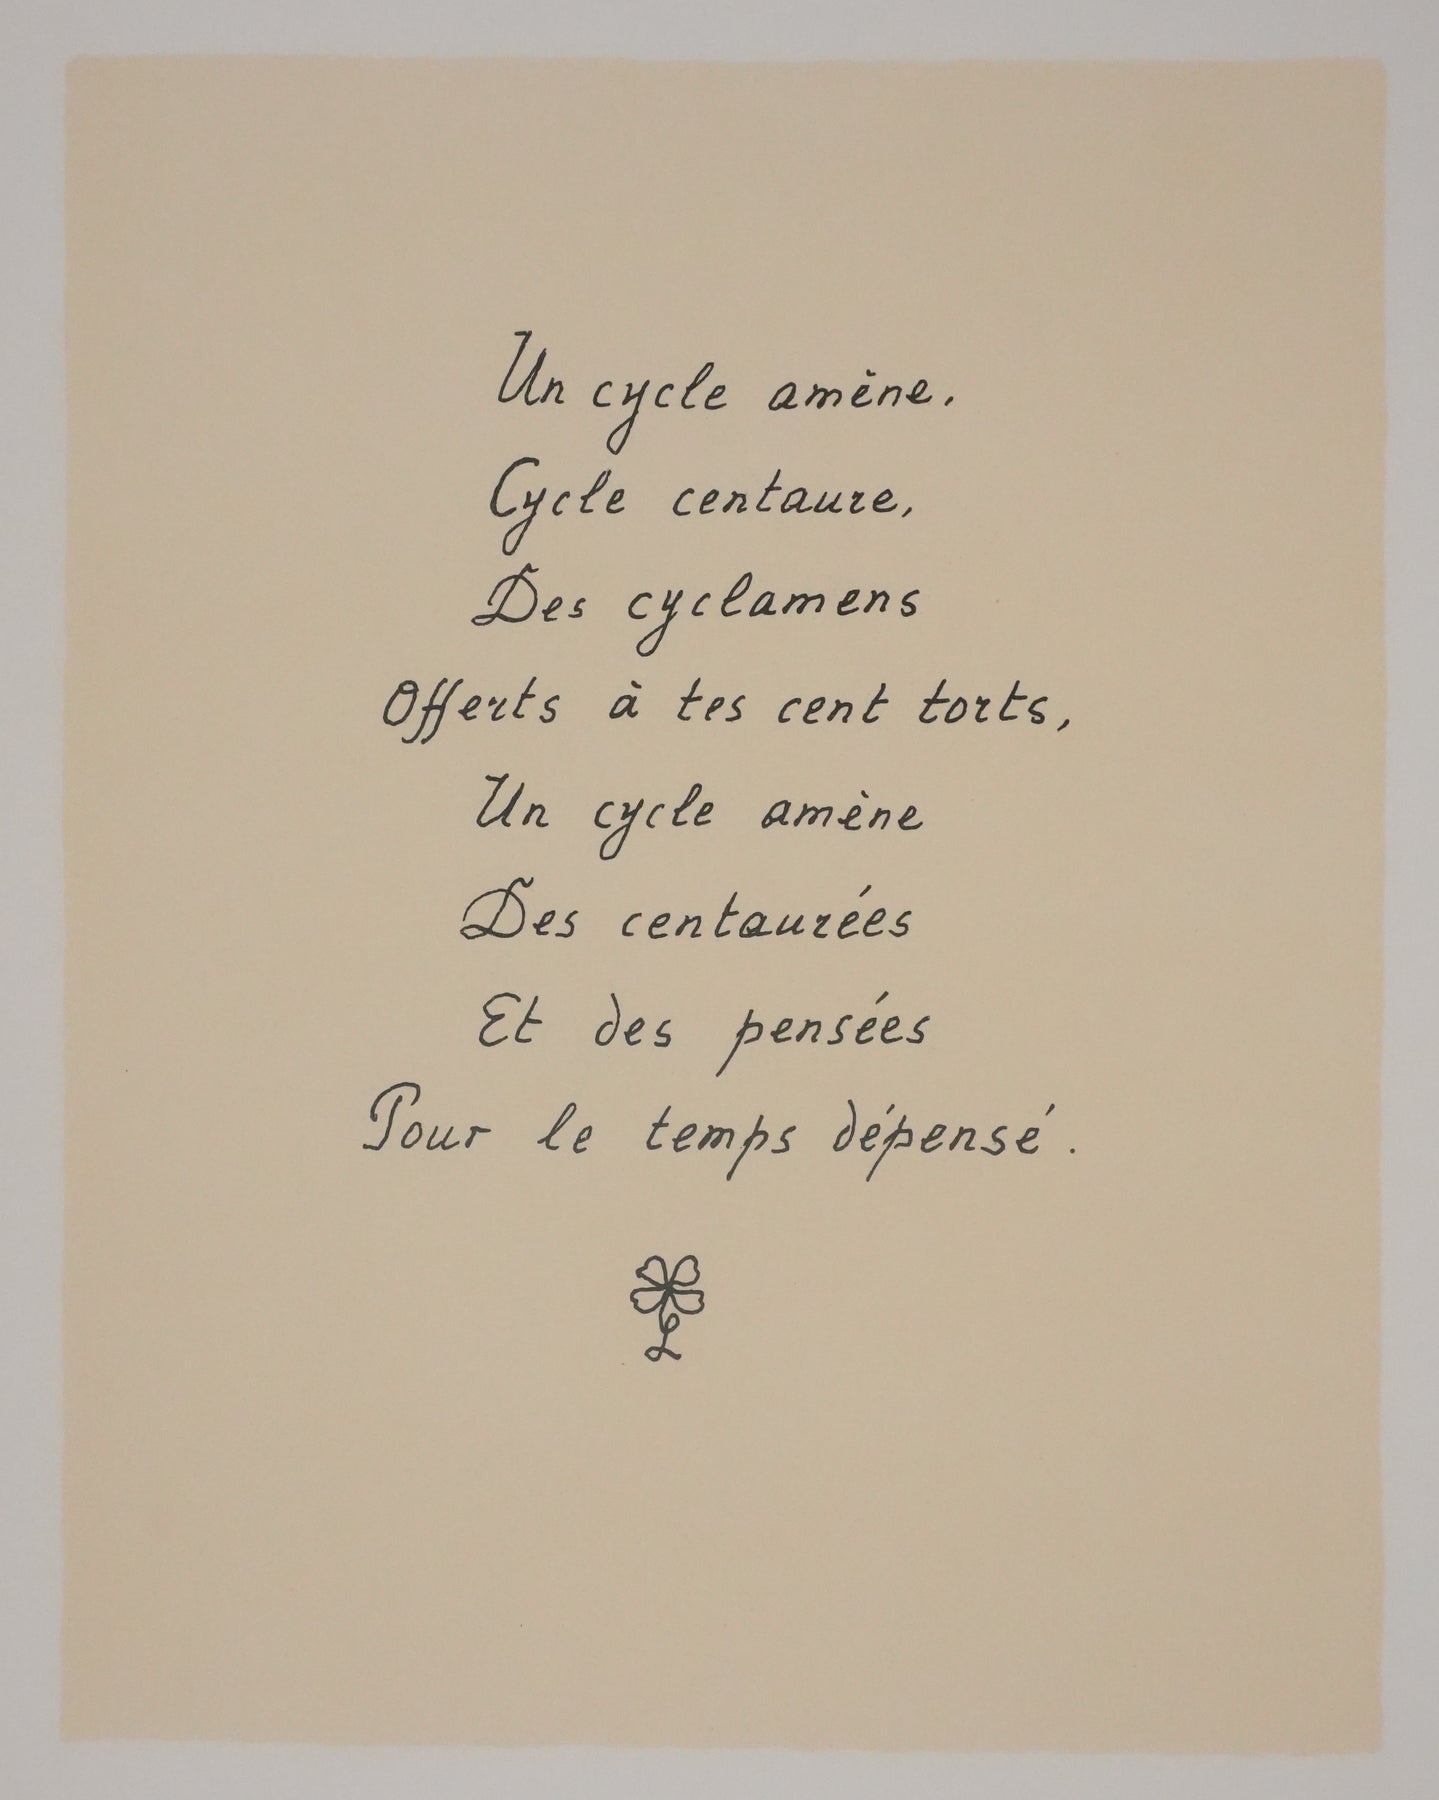 Un cycle amène,
Cycle centaure,
Des cyclamens
Offerts à tes cent torts,
Un cycle amène
Des centaurées
Et des pensées
Pour le temps dépensé.
L